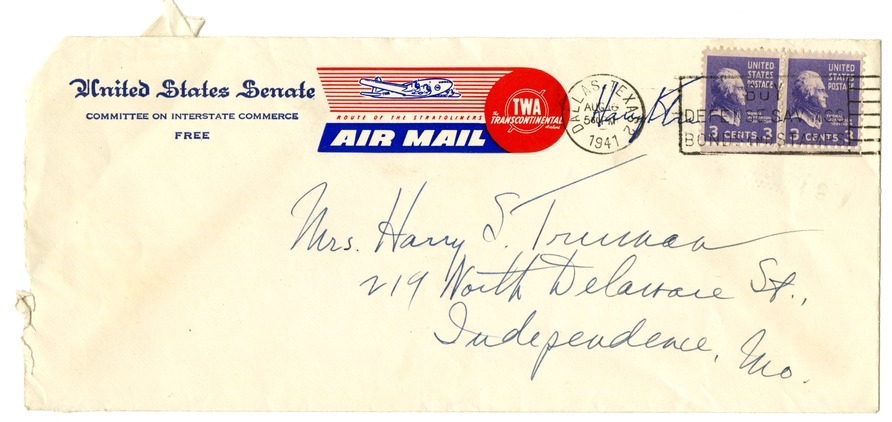 United States Senate
COMMITTEE ON INTERSTATE COMMERCE
FREE
ROUTE OF THE STRATOLINERS
AIR MAIL
TWA
The TRANSCONTINENTAL Airline
DALLAS, TEXAS
AUG
5 PM
1941
BUY
DEFENSE SAVINGS
BONDS
UNITED STATES POSTAGE
3 CENTS 3
UNITED STATES POSTAGE
3 CENTS 3
Mrs. Harry S. Truman
219 North Delaware St.,
Independence, Mo.